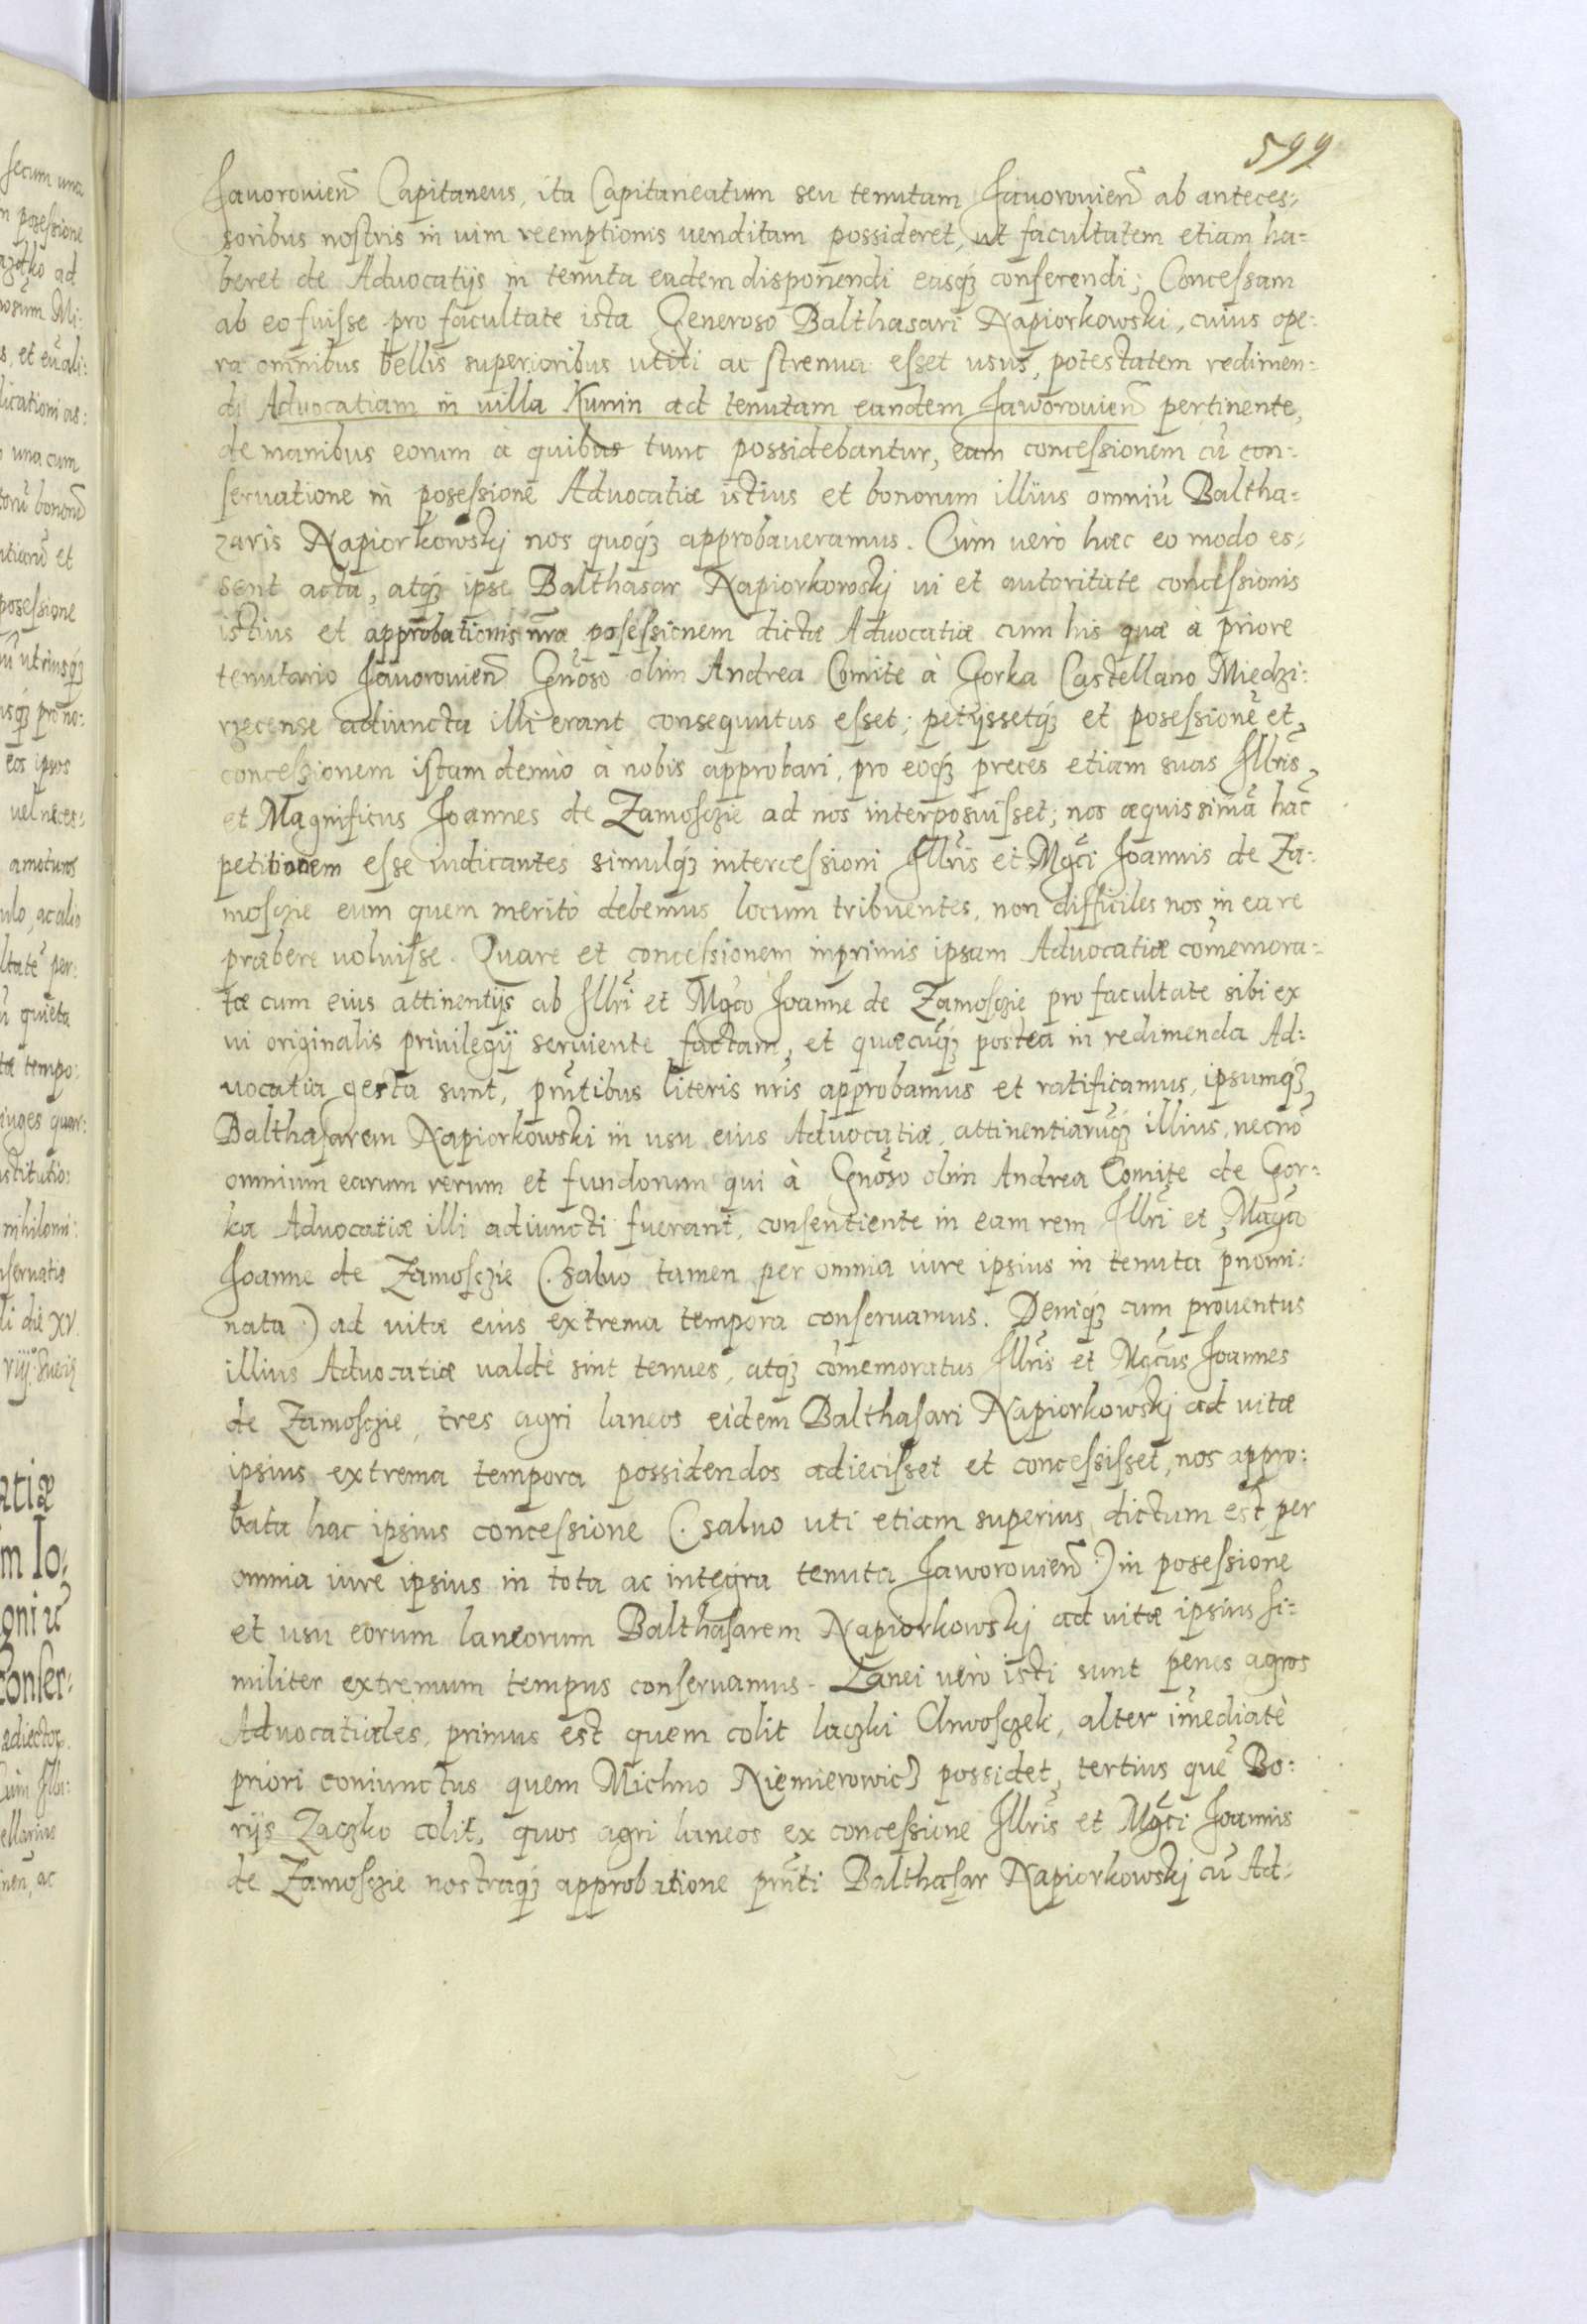 599
Jauorouien̄ Capitaneus, ita Capitaneatum seu tenutam Jauorouien̄ ab anteces:,
soribus nostris in uim reemptionis uenditam possideret, ut facultatem etiam ha=
beret de Aduocatijs in tenuta eadem disponendi easq́ʒ conferendi; Concessam
ab eo fuisse pro facultate ista Generoso Balthasari Napiorkowski, cuius ope:
ra omnibus bellis superioribus utili ac strenua esset usus, potestatem redimen:
di Aduocatiam in uilla Kunin ad tenutam eandem Jaworouien̄ pertinente,
de manibus eorum à quibus tunc possidebantur, eam concessionem cū con:
seruatione in posessione Aduocatiæ istius et bonorum illius omniū Baltha=
zaris Napiorkowskj nos quoq́ʒ approbaueramus. Cùm uerò hæc eo modo es:,
sent acta, atq́ʒ ipse Balthasar Napiorkowskj ui et autoritate concessionis
istius et approbationis nr̄æ posessionem dictæ Aduocatiæ cum his quæ à priore
tenutario Jauorouien̄ Gn̄oso olim Andrea Comite à Gorka Castellano Miedzi:
rzecense adiuncta illi erant consequutus esset; petijssetq́ʒ et posessionē et
concessionem istam denuò à nobis approbari, pro eoq́ʒ preces etiam suas Jllr̄is
et Magnificus Joannes de Zamosczie ad nos interposuisset; nos æquissimā hāc
petitionem esse iudicantes simulq́ʒ intercessioni Jllr̄is et Mgc̄i Joannis de Za:
mosczie eum quem meritò debemus locum tribuentes, non difficiles nos in ea re
præbere uoluisse. Quare et concessionem inprimis ipsam Aduocatiæ com̄emora:
tæ cum eius attinentijs ab Jllr̄i et Mgc̄o Joanne de Zamosczie pro facultate sibi ex
ui originalis priuilegij seruiente factam, et quæcūq́ʒ postea in redimenda Ad:
uocatia gesta sunt, pr̄ntibus literis nr̄is approbamus et ratificamus, ipsumq́ʒ
Balthasarem Napiorkowski in usu eius Aduocatiæ, attinentiarūq́ʒ illius, necnō
omnium earum rerum et fundorum qui à Gn̄oso olim Andrea Comite de Gor:
ka Aduocatiæ illi adiuncti fuerant, consentiente in eam rem Jllr̄i et Magc̄o
Joanne de Zamosczie (. saluo tamen per omnia iure ipsius in tenuta p̄nomi:
nata .) ad uitæ eius extrema tempora conseruamus. Deniq́ʒ cum prouentus
illius Aduocatiæ ualdè sint tenues, atq́ʒ com̄emoratus Jllr̄is et Mgc̄us Joannes
de Zamosczie, tres agri laneos eidem Balthasari Napiorkowskj ad uitæ
ipsius extrema tempora possidendos adiecisset et concessisset, nos appro:
bata hac ipsius concessione (. saluo uti etiam superius dictum est per
omnia iure ipsius in tota ac integra tenuta Jaworouien̄ .) in posessione
et usu eorum laneorum Balthasarem Napiorkowskj ad uitæ ipsius si=
militer extremum tempus conseruamus. Lanei uerò isti sunt penes agros
Aduocatiales, primus est quem colit laczki Chwosczek, alter im̄ediatè
priori coniunctus quem Michno Niemierowicz possidet, tertius quē Bo:
rijs Zaczko colit, quos agri laneos ex concessione Jllr̄is et Mgc̄i Joannis
de Zamosczie nostraq́ʒ approbatione pr̄nti Balthasar Napiorkowskj cū Ad: